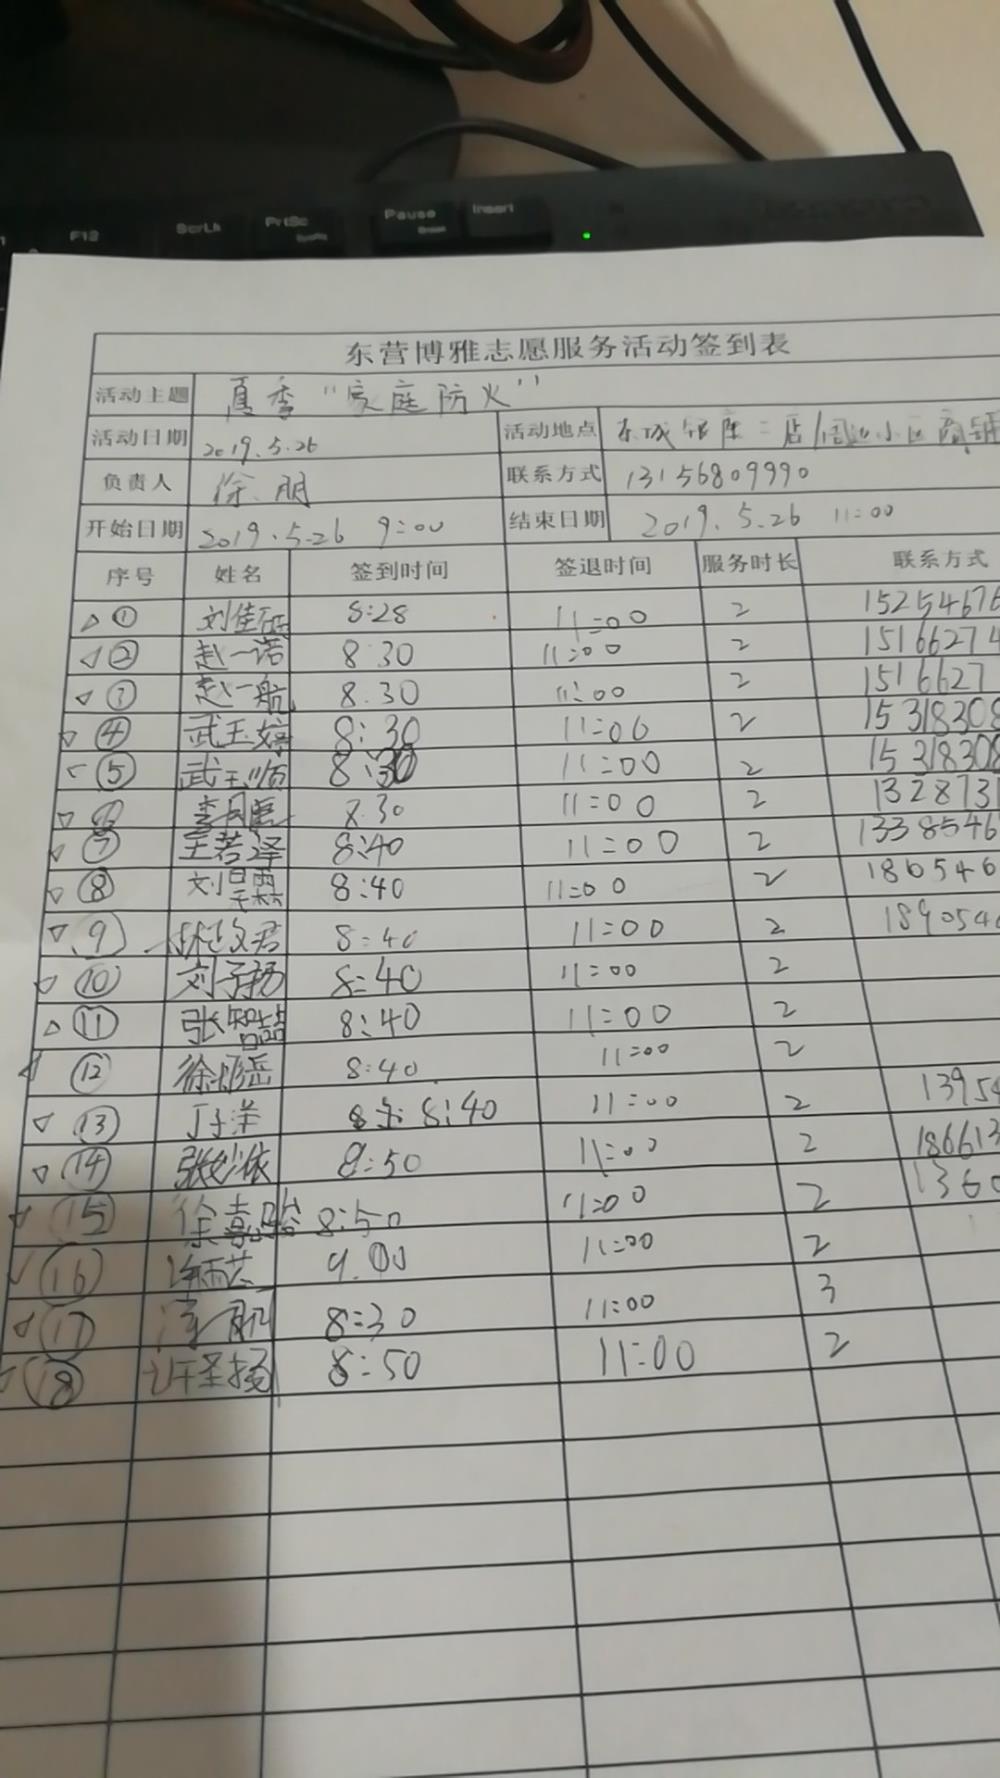 F12 ScrLk PrtSc SysRq Pause Break Insert
东营博雅志愿服务活动签到表
活动主题 夏季"家庭防火"
活动日期 2019.5.26 活动地点 东城银座二店周边小区商铺
负责人 徐朋 联系方式 13156809990
开始日期 2019.5.26 9:00 结束日期 2019.5.26 11:00
序号 姓名 签到时间 签退时间 服务时长 联系方式
① 刘佳 8:28 11:00 2 15254676
② 赵一诺 8:30 11:00 2 15166274
③ 赵一航 8:30 11:00 2 1516627
④ 武玉婷 8:30 11:00 2 15318308
⑤ 武玉顺 8:30 11:00 2 15318308
李 8:30 11:00 2 1328731
⑦ 王若泽 8:40 11:00 2 1338546
⑧ 刘昊霖 8:40 11:00 2 186546
⑨ 文君 8:40 11:00 2 189054
⑩ 刘子扬 8:40 11:00 2
⑪ 张智喆 8:40 11:00 2
⑫ 徐 8:40 11:00 2
⑬ 丁子洋 8:40 11:00 2 1395
⑭ 张妙依 8:50 11:00 2 186613
⑮ 徐嘉 8:50 11:00 2 1360
⑯ 9:00 11:00 2
⑰ 8:30 11:00 3
⑱ 许圣扬 8:50 11:00 2